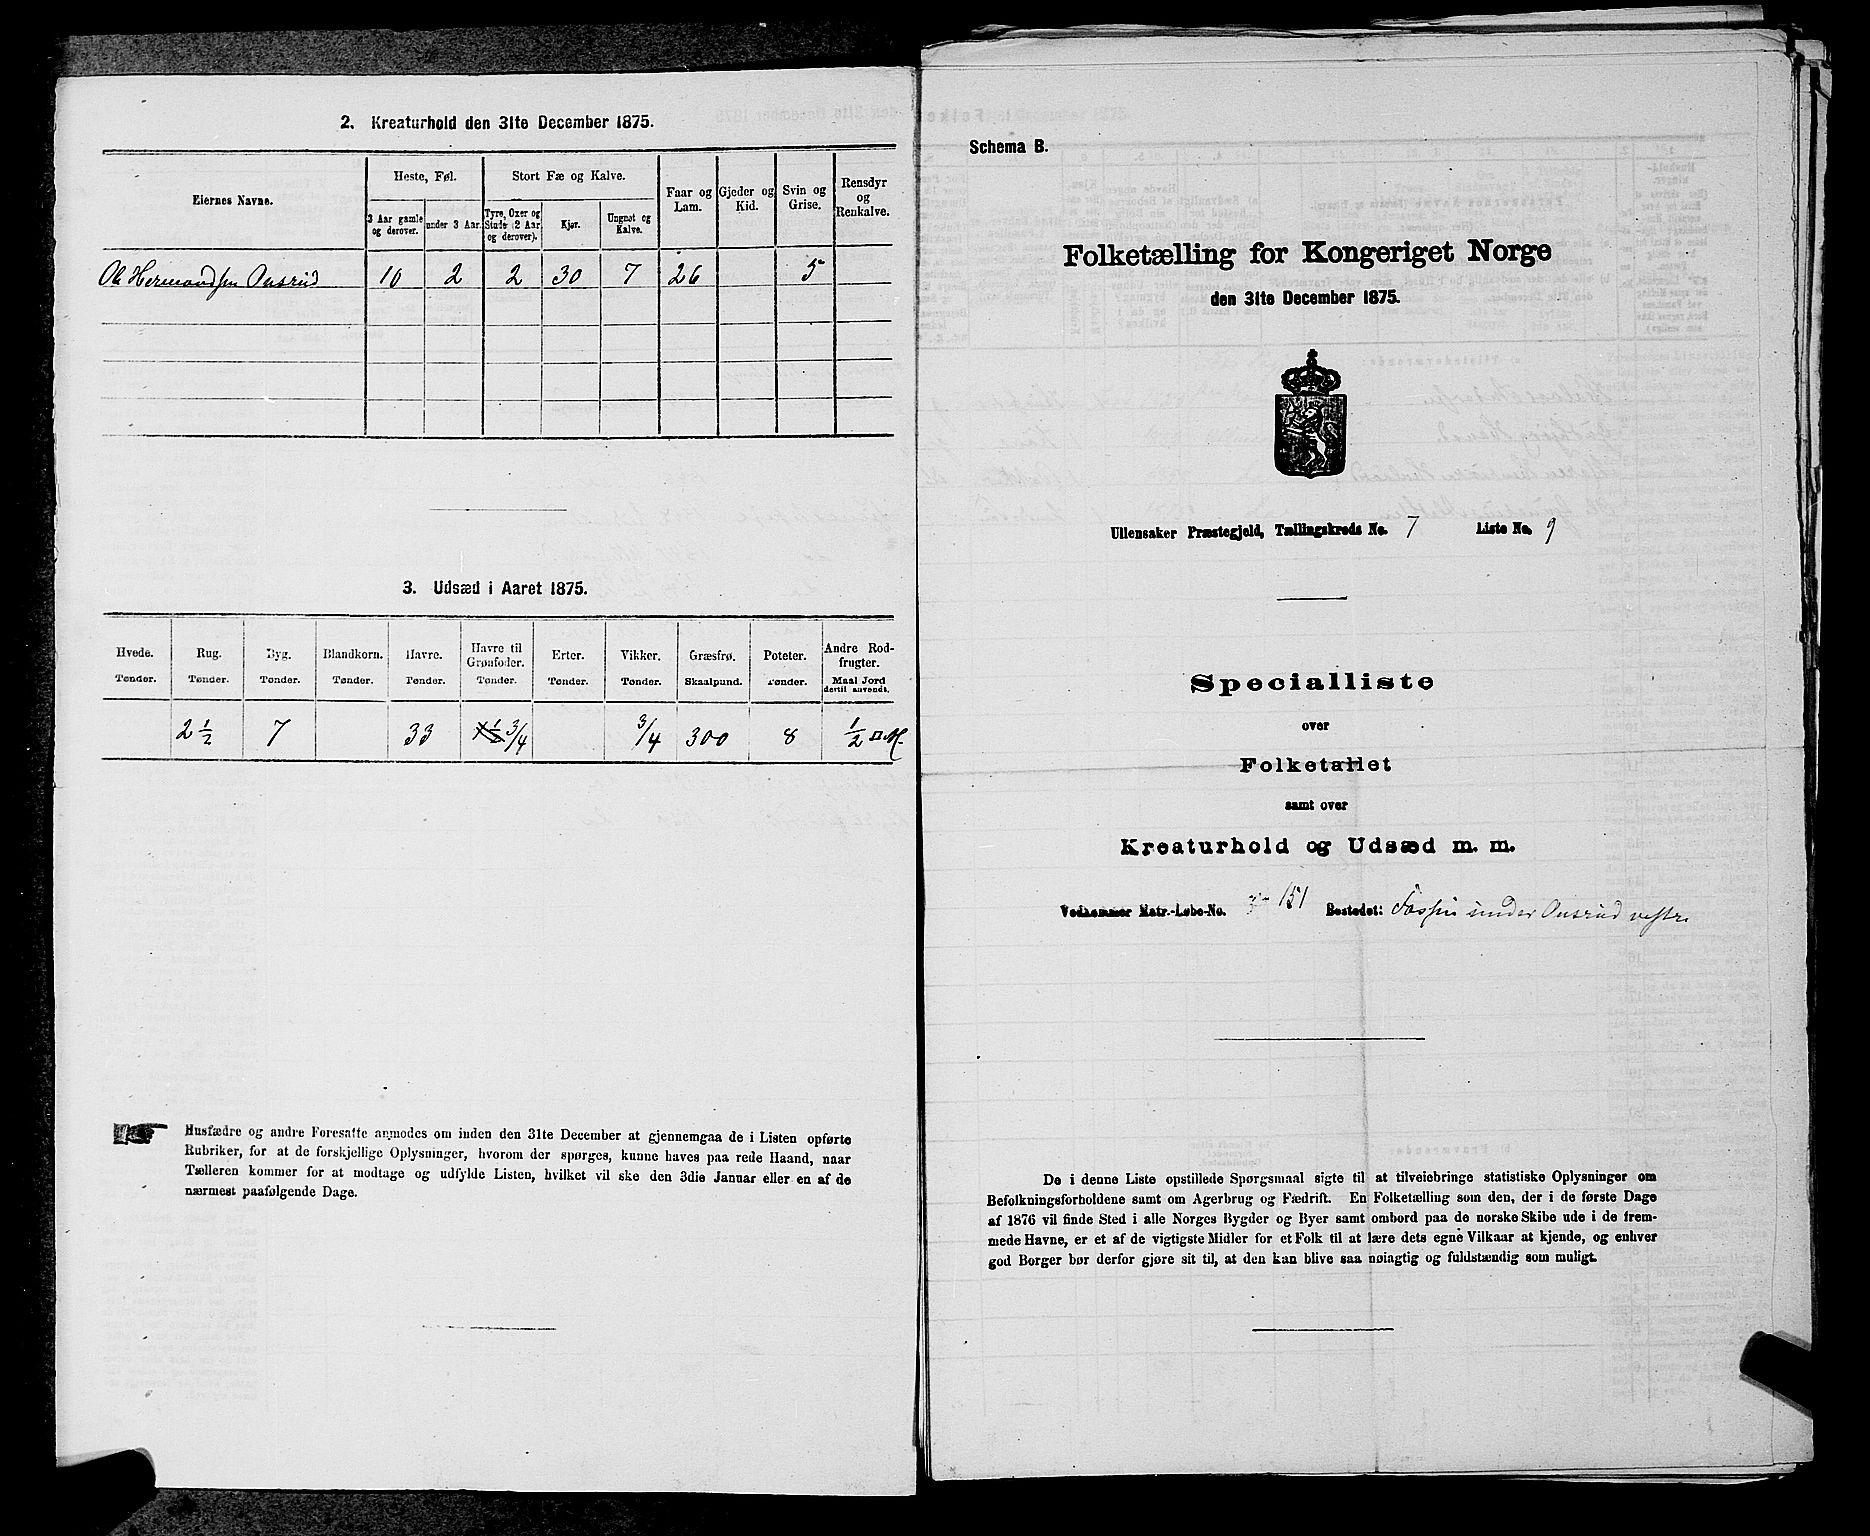 2. Kreaturhold den 31te December 1875.
Eiernes Navne.
Heste, Føl.
Stort Fæ og Kalve.
Faar og Lam.
Gjeder og Kid.
Svin og Grise.
Rensdyr og Renkalve.
3 Aar gamle og derover.
under 3 Aar.
Tyre, Oxer og Stude (2 Aar og derover).
Kjør.
Ungnøt og Kalve.
Ole Hermandsen Onsrud 10 2 2 30 7 26 5
3. Udsæd i Aaret 1875.
Hvede. Rug. Byg. Blandkorn. Havre. Havre til Grønfoder. Erter. Vikker. Græsfrø. Poteter. Andre Rodfrugter.
Tønder. Tønder. Tønder. Tønder. Tønder. Tønder. Tønder. Tønder. Skaalpund. Tønder. Maal Jord dertil anvendt.
2 1/2 7 33 3/4 3/4 300 8 1/2 □ M.
Husfædre og andre Foresatte anmodes om inden den 31te December at gjennemgaa de i Listen opførte
Rubriker, for at de forskjellige Oplysninger, hvorom der spørges, kunne haves paa rede Haand, naar
Tælleren kommer for at modtage og udfylde Listen, hvilket vil ske den 3die Januar eller en af de
nærmest paafølgende Dage.
Schema B.
Folketælling for Kongeriget Norge
den 31te December 1875.
Ullensaker Præstegjeld, Tællingskreds No. 7 Liste No. 9
Specialliste
over
Folketallet
samt over
Kreaturhold og Udsæd m. m.
Vedkommer Matr.-Løbe-No. 151 Bostedet: Fossen under Onsrud vestre
De i denne Liste opstillede Spørgsmaal sigte til at tilveiebringe statistiske Oplysninger om
Befolkningsforholdene samt om Agerbrug og Fædrift. En Folketælling som den, der i de første Dage
af 1876 vil finde Sted i alle Norges Bygder og Byer samt ombord paa de norske Skibe ude i de frem-
mede Havne, er et af de vigtigste Midler for et Folk til at lære dets egne Vilkaar at kjende, og enhver
god Borger bør derfor gjøre sit til, at den kan blive saa nøiagtig og fuldstændig som muligt.